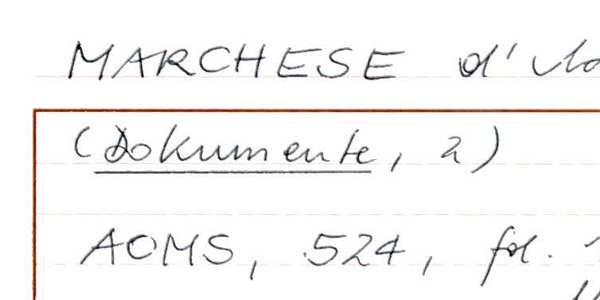 MARCHESE
(Dokumente, 2)
AOMS, 524, fol.